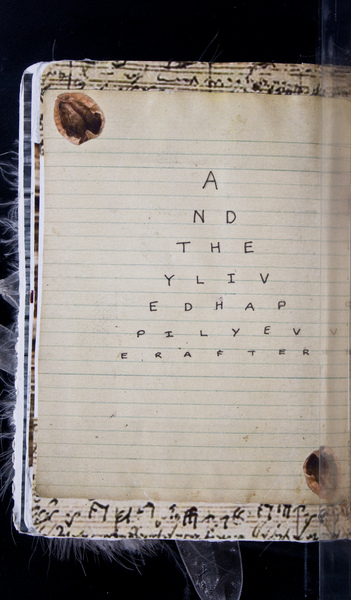 A
N D
T H E
Y L I V
E D H A P
P I L Y E V
E R A F T E R